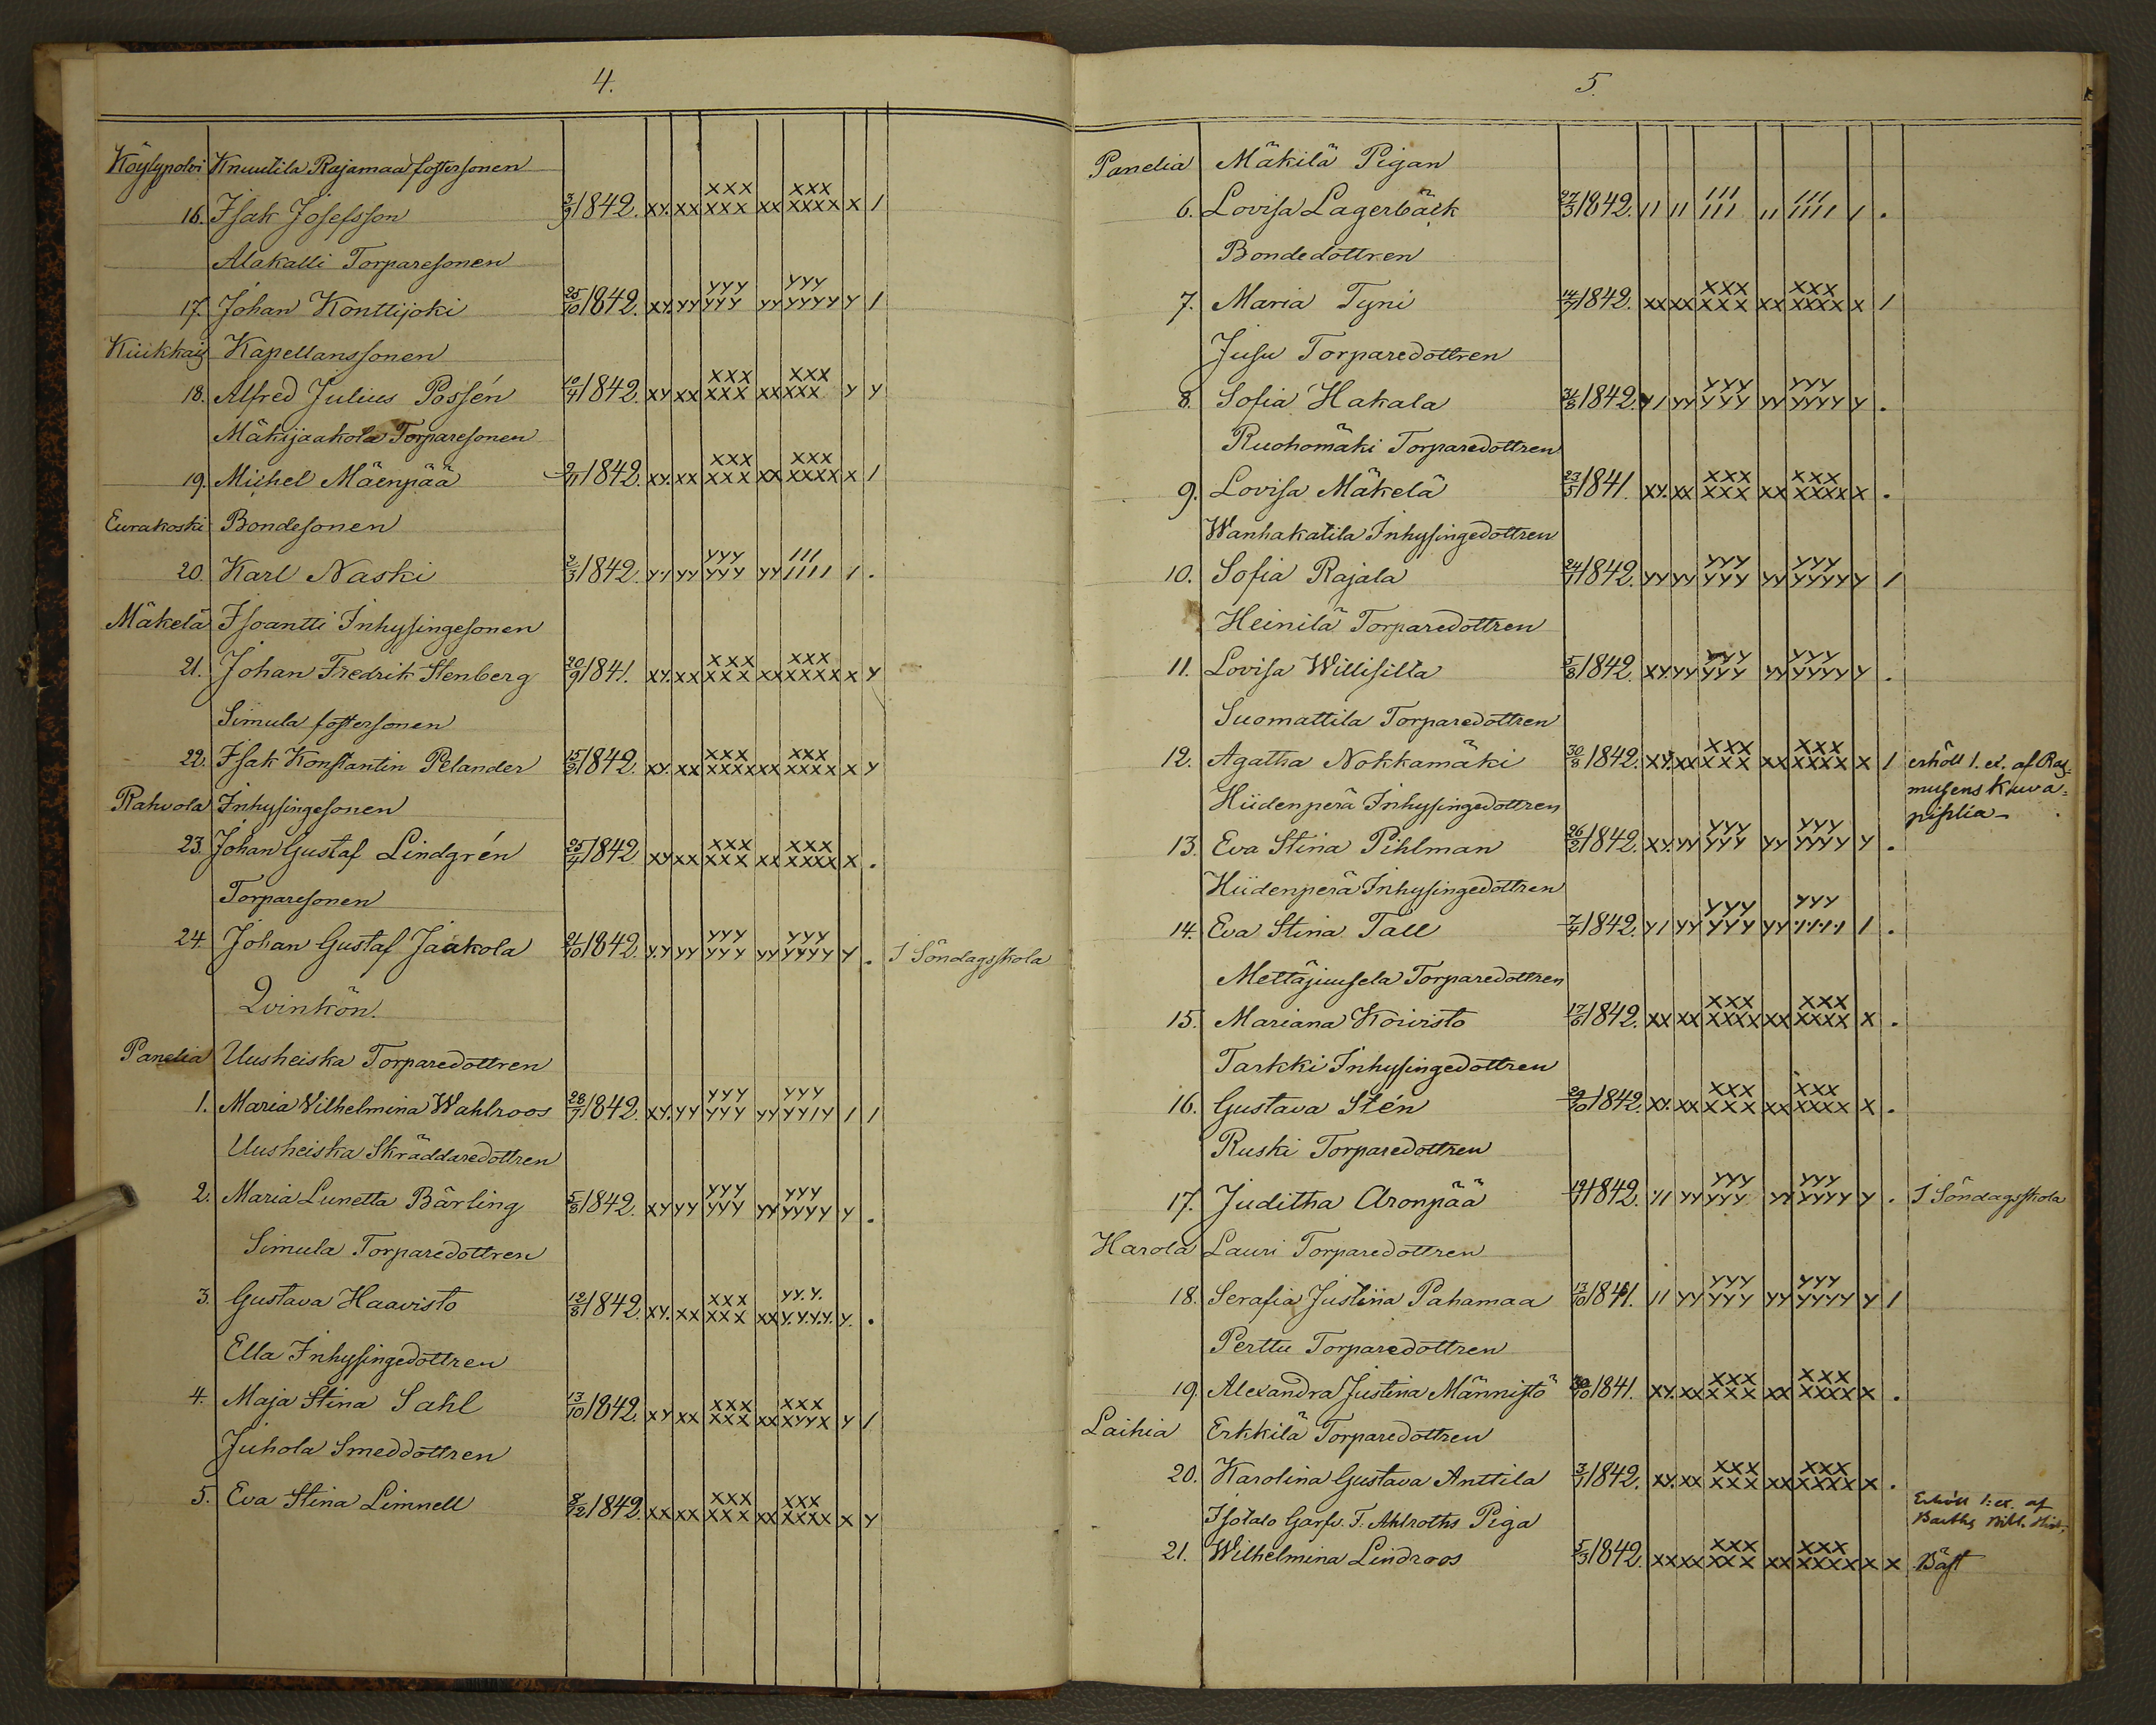 4.
Köylypolvi Knuutila Rajamaa fostersonen
16. Isak Josefsson 3/9 1842. xy. xx xxx xxx xx xxx xxxx x /
Alakalli Torparesonen
17. Johan Konttijoki 25/10 1842. xy. yy yyy yyy yy yyy yyyy y /
Kiukkais Kapellanssonen
18. Alfred Julius Possén 10/4 1842. xy xx xxx xxx xx xxx xxx y y
Mäkijaakola Torparesonen
19. Michel Mäenpää 2/11 1842. xy. xx xxx xxx xx xxx xxxx x /
Eurakoski Bondesonen
20. Karl Naski 2/3 1842. y/ yy yyy yyy yy /// //// / .
Mäkelä Isoantti Inhysingesonen
21. Johan Fredrik Stenberg 20/9 1841. xy. xx xxx xxx xx xxx xxxx x y
Simula fostersonen
22. Isak Konstantin Pelander 15/3 1842. xy. xx xxx xxx xx xxx xxxx x y
Rahvola Inhysingesonen
23. Johan Gustaf Lindgrén 25/4 1842 xy xx xxx xxx xx xxx xxxx x .
Torparesonen
24. Johan Gustaf Jaakola 21/10 1842. yy yy yyy yyy yy yyy yyyy y . I Söndagsskola
Qvinkön.
Panelia Uusheiska Torparedottren
1. Maria Vilhelmina Wahlroos 28/7 1842. xy. yy yyy yyy yy yyy yy/y / /
Uusheiska Skräddaredottren
2. Maria Lunetta Bärling 5/8 1842. xy yy yyy yyy yy yyy yyyy y .
Simula Torparedottren
3. Gustava Haavisto 12/8 1842. xy. xx xxx xxx xx yy.y. y.y.y.y. y. .
Ella Inhysingedottren
4. Maja Stina Sahl 13/10 1842. xy xx xxx xxx xx xxx xyyx y /
Juhola Smeddottren
5. Eva Stina Limnell 8/12 1842. xx xx xxx xxx xx xxx xxxx x y
5.
Panelia Mäkilä Pigan
6. Lovisa Lagerbäck 27/3 1842. // // /// /// // /// //// / .
Bondedottren
7. Maria Tyni 14/7 1842. xx xx xxx xxx xx xxx xxxx x /
Jusu Torparedottren
8. Sofia Hakala 31/8 1842. y/ yy yyy yyy yy yyy yyyy y .
Ruohomäki Torparedottren
9. Lovisa Mäkelä 23/5 1841. xy. xx xxx xxx xx xxx xxxx x .
Wanhakatila Inhysingedottren
10. Sofia Rajala 24/1 1842. yy yy yyy yyy yy yyy yyyy y /
Heinilä Torparedottren
11. Lovisa Willisilta 5/8 1842. xy. yy yyy yyy yy yyy yyyy y .
Suomattila Torparedottren
12. Agatha Nokkamäki 30/8 1842. xy. xx xxx xxx xx xxx xxxx x / erhöll 1. ex. af Ras-
musens Kuva-
Hiidenperä Inhysingedottren piplia
13. Eva Stina Pihlman 26/2 1842. xy. yy yyy yyy yy yyy yyyy y .
Hiidenperä Inhysingedottren
14. Eva Stina Tall 7/4 1842. y/ yy yyy yyy yy yyy //// / .
Mettäjuusela Torparedottren
15. Mariana Koivisto 17/6 1842. xx xx xxx xxxx xx xxx xxxx x .
Tarkki Inhysingedottren
16. Gustava Stén 29/10 1842. xy. xx xxx xxx xx xxx xxxx x .
Ruski Torparedottren
17. Juditha Aronpää 19/7 1842. // yy yyy yyy yy yyy yyyy y . I Söndagsskola
Harola Lauri Torparedottren
18. Serafia Justina Pahamaa 13/10 1841. // yy yyy yyy yy yyy yyyy y /
Perttu Torparedottren
19. Alexandra Justina Männistö 30/10 1841. xy. xx xxx xxx xx xxx xxxx x .
Laihia Erkkilä Torparedottren
20. Karolina Gustava Anttila 3/1 1842. xy. xx xxx xxx xx xxx xxxx x .
Isotalo Garfv. F. Ahlroths Piga Erhöll 1. ex. af
Barths Bibl. Hist.
21. Wilhelmina Lindroos 5/3 1842. xx xx xxx xxx xx xxx xxxx x x Bäst